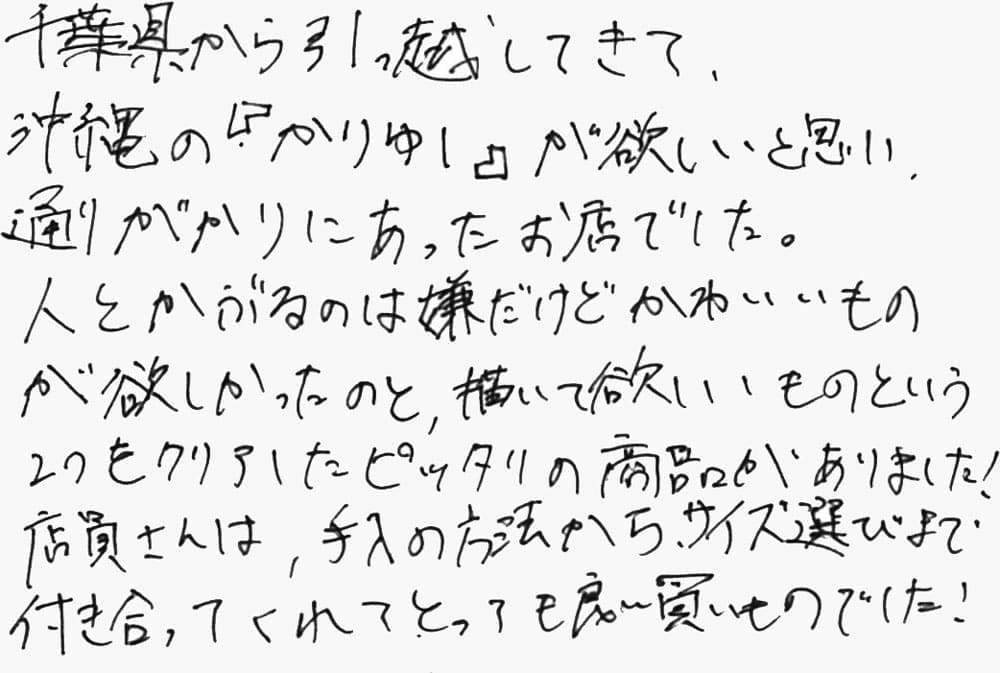 千葉県から引っ越してきて、
沖縄の『かりゆし』が欲しいと思い、
通りがかりにあったお店でした。
人とかぶるのは嫌だけどかわいいもの
が欲しかったのと、描いて欲しいものという
2つをクリアしたピッタリの商品がありました!
店員さんは、手入の方法から、サイズ選びまで
付き合ってくれてとっても良い買いものでした!